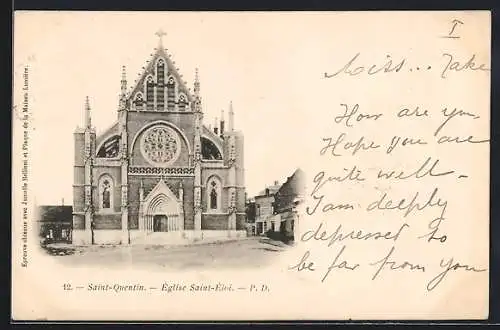 T
Miss... Take
How are you
Hope you are
quite well
I am deeply
depresset to
be far from you
12. — Saint-Quentin. — Église Saint-Éloi. — P. D.
Épreuve obtenue avec Jumelle Bellieni et Plaque de la Maison Lumière.